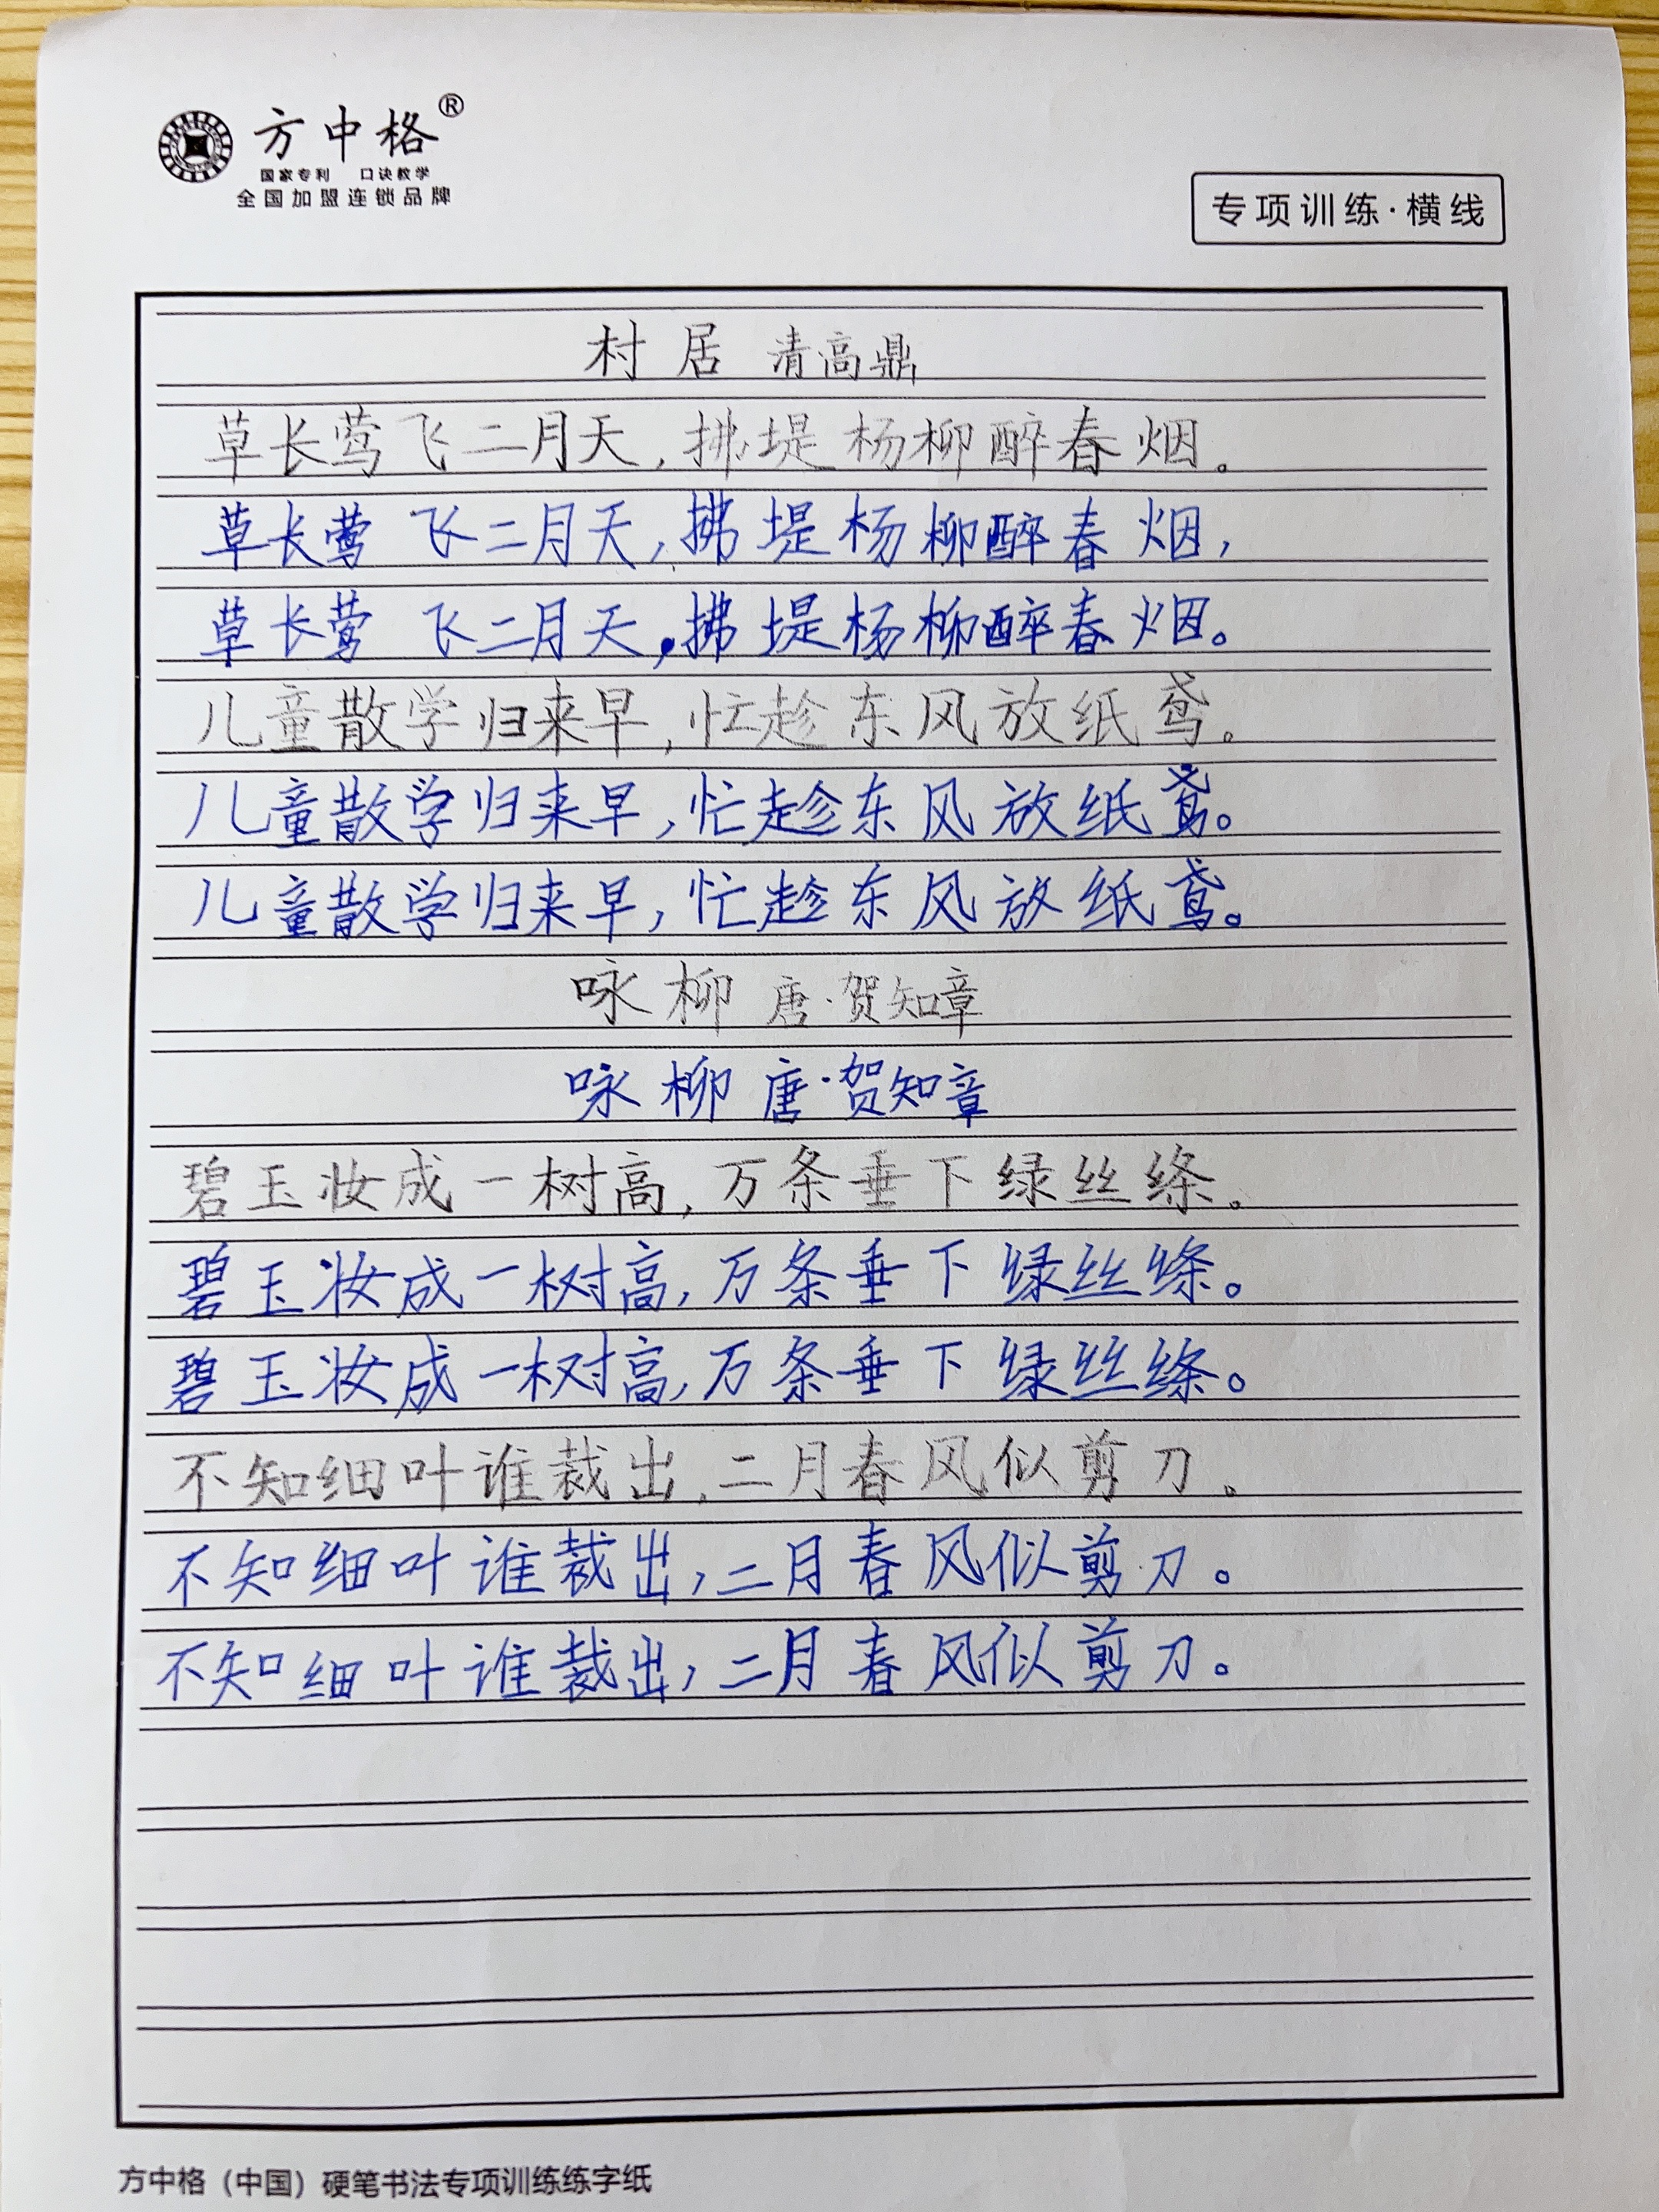 方中格®
国家专利 口诀教学
全国加盟连锁品牌
专项训练·横线
村居 清高鼎
草长莺飞二月天,拂堤杨柳醉春烟。
草长莺飞二月天,拂堤杨柳醉春烟,
草长莺飞二月天,拂堤杨柳醉春烟。
儿童散学归来早,忙趁东风放纸鸢。
儿童散学归来早,忙趁东风放纸鸢。
儿童散学归来早,忙趁东风放纸鸢。
咏柳 唐·贺知章
咏柳 唐·贺知章
碧玉妆成一树高,万条垂下绿丝绦。
碧玉妆成一树高,万条垂下绿丝绦。
碧玉妆成一树高,万条垂下绿丝绦。
不知细叶谁裁出,二月春风似剪刀。
不知细叶谁裁出,二月春风似剪刀。
不知细叶谁裁出,二月春风似剪刀。
方中格(中国)硬笔书法专项训练练字纸